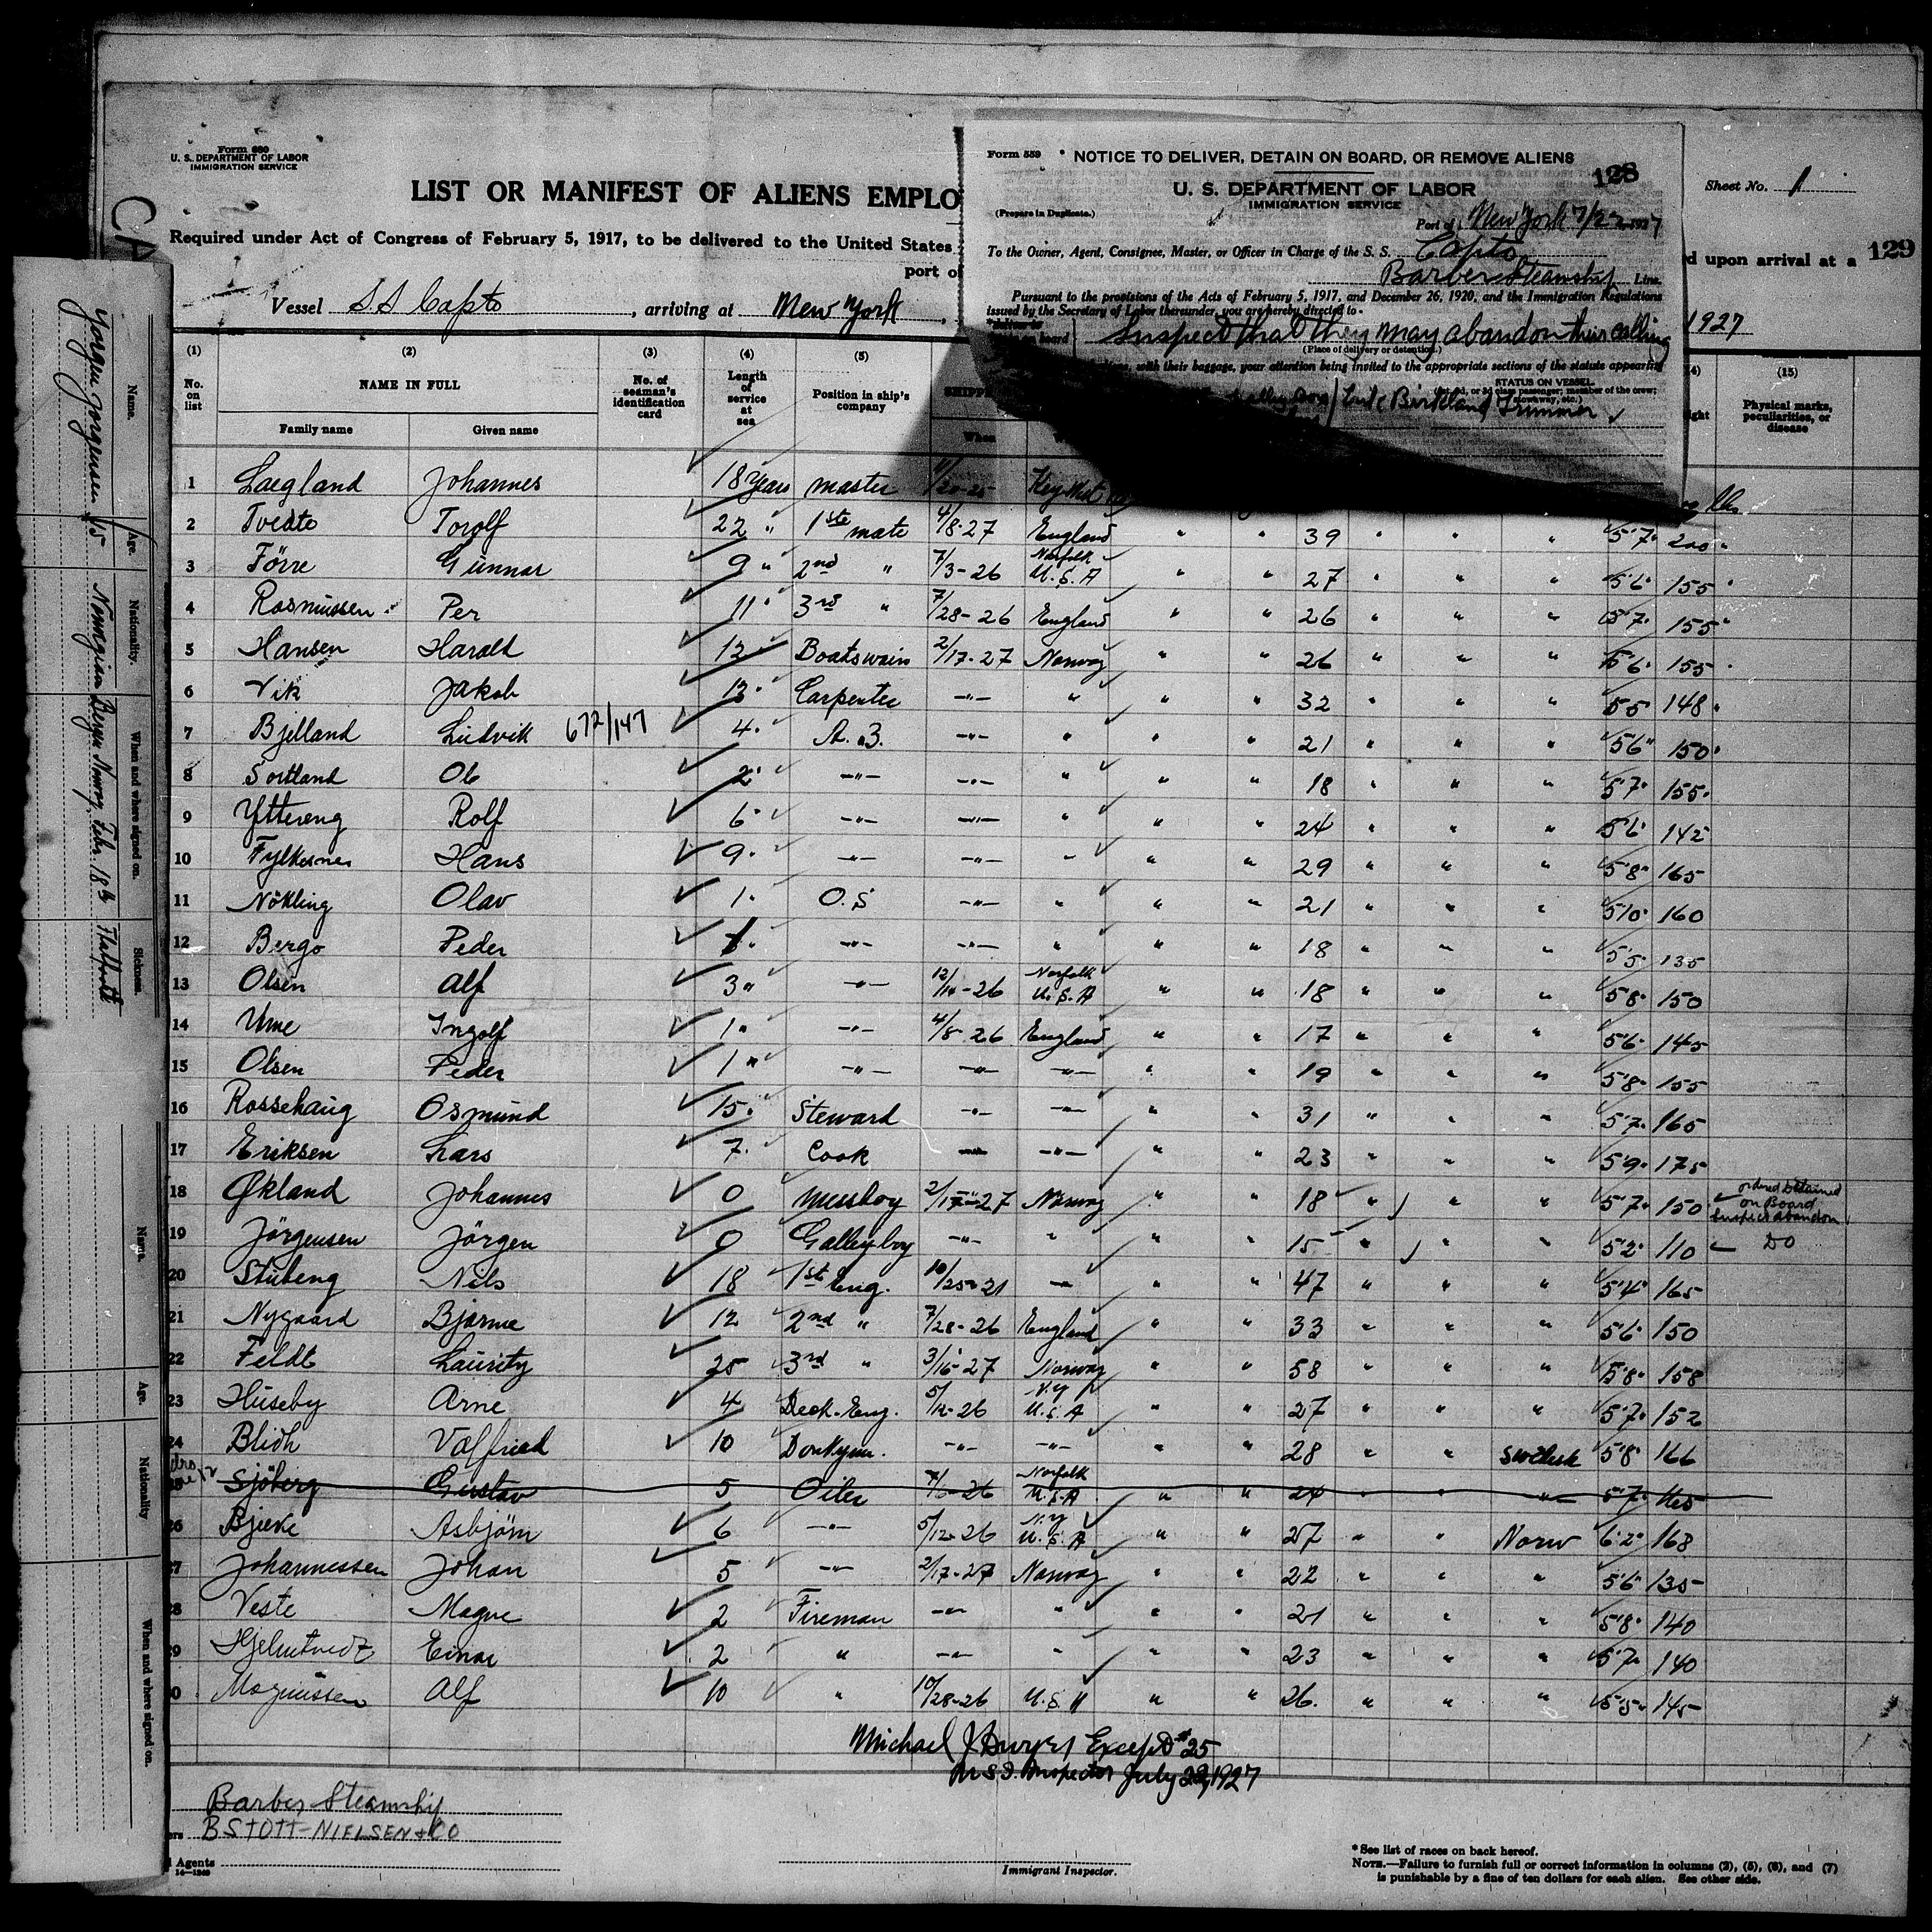 Form 680
U. S. DEPARTMENT OF LABOR
IMMIGRATION SERVICE
LIST OR MANIFEST OF ALIENS EMPLO
Required under Act of Congress of February 5, 1917, to be delivered to the United States
port of
Vessel S.S Capto, arriving at New York
Form 559
NOTICE TO DELIVER, DETAIN ON BOARD, OR REMOVE ALIENS
128
U. S. DEPARTMENT OF LABOR
IMMIGRATION SERVICE
(Prepare in Duplicate.)
Port of New York 7/22 1927
To the Owner, Agent, Consignee, Master, or Officer in Charge of the S. S. Capto
Barber Steamship Line.
Pursuant to the provisions of the Acts of February 5, 1917, and December 26, 1920, and the Immigration Regulations
issued by the Secretary of Labor thereunder, you are hereby directed to-
on board
Suspect that they may abandon their calling
(Place of delivery or detention.)
with their baggage, your attention being invited to the appropriate sections of the statute appearing
STATUS ON VESSEL
Birkeland Trimmer
Sheet No. 1
d upon arrival at a 129
1927
(1) (2) (3) (4) (5) (15)
No. on list
NAME IN FULL
Family name Given name
No. of seaman's identification card
Length of service at sea
Position in ship's company
When
Physical marks, peculiarities, or disease
1 Laegland Johannes 18 years master Key West
2 Tvedto Torolf 22 " 1ste mate 4/8-27 England " " 39 " " " 5'7" 200 "
3 Förre Gunnar 9 " 2nd " 7/3-26 Norfolk U.S.A " " 27 " " " 5'6" 155 "
4 Rasmussen Per 11 " 3rd " 7/28-26 England " " 26 " " " 5'7" 155 "
5 Hansen Harald 12 Boatswain 2/17-27 Norway " " 26 " " " 5'6" 155
6 Vik Jakob 13 Carpenter -"- " " " 32 " " " 5'5 148 "
7 Bjelland Ludvik 672/147 4 A.B. -"- " " " 21 " " " 5'6" 150
8 Sortland Ole 2 -"- -"- " " " 18 " " " 5'7" 155
9 Yttereng Rolf 6 -"- -"- " " " 24 " " " 5'6 142
10 Fylkesnes Hans 9 -"- -"- " " " 29 " " " 5'8" 165
11 Nökling Olav 1 O.S -"- " " " 21 " " " 5'10" 160
12 Bergo Peder 1 -"- -"- " " " 18 " " " 5'5" 135
13 Olsen Alf 3 " -"- 12/14-26 Norfolk U.S.A " " 18 " " " 5'8" 150
14 Ume Ingolf 1 " -"- 4/8-26 England " " 17 " " " 5'6" 145
15 Olsen Peder 1 " -"- -"- -"- " " 19 " " " 5'8" 155
16 Rossehaug Osmund 15 Steward -"- -"- " " 31 " " " 5'7" 165
17 Eriksen Lars 7 Cook -"- -"- " " 23 " " " 5'9" 175
18 Økland Johannes 0 Messboy 2/17-27 Norway " " 18 " " " 5'7" 150 ordered Detained on Board Suspect abandon
19 Jörgensen Jörgen 0 Galleyboy -"- " " " 15 " " " 5'2" 110 DO
20 Stubeng Nils 18 1st Eng. 10/25-21 -"- " " 47 " " " 5'4" 165
21 Nygaard Bjarne 12 2nd " 7/28-26 England " " 33 " " " 5'6" 150
22 Feldt Lauritz 25 3rd " 3/16-27 Norway " " 58 " " " 5'8" 158
23 Huseby Arne 4 Deck-Eng. 5/12-26 N.Y U.S.A " " 27 " " " 5'7" 152
24 Blidh Valfried 10 Donkym. -"- -"- " " 28 " " Swedish 5'8" 166
Sjöberg Gustav 5 Oiler Norfolk U.S.A " " 24 " " " 5'7" 165
26 Bjerke Asbjörn 6 -"- 5/12-26 N.Y U.S.A " " 27 " " Norw 6'2" 168
27 Johannessen Johan 5 -"- 2/17-27 Norway " " 22 " " " 5'6" 135
28 Veste Magne 2 Fireman -"- " " " 21 " " " 5'8" 140
29 Hjelmtvedt Einar 2 " -"- " " " 23 " " " 5'7" 140
0 Magnussen Alf 10 " 10/28-26 U.S.A " " 26. " " " 5'5" 145
Michael J Dwyer Except #25
U S I. Inspector July 22, 1927
Barber Steamship
B STOTT-NIELSEN & CO
Agents
14-1249
Immigrant Inspector.
* See list of races on back hereof.
NOTE.—Failure to furnish full or correct information in columns (2), (5), (6), and (7)
is punishable by a fine of ten dollars for each alien. See other side.
Name. Age. Nationality. When and where signed on. Sickness.
Jorgen Jorgensen 15 Norwegian Bergen Norway, Febr. 18th Flatfoot
Name. Age. Nationality When and where signed on.